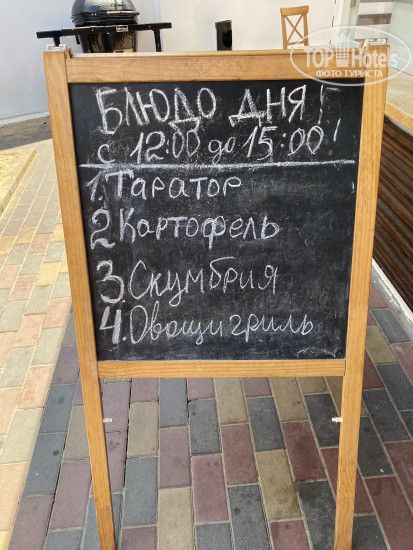 TopHotels
ФОТО ТУРИСТА
БЛЮДО ДНЯ!
с 12:00 до 15:00!
1. Таратор
2. Картофель
3. Скумбрия
4. Овощи гриль